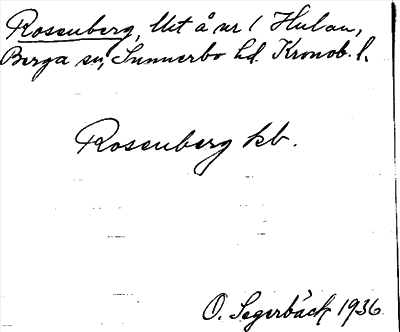 Rosenberg, lht å nr 1 Hulan,
Berga sn, Sunnerbo hd. Kronob. l.
Rosenberg kb.
O. Segerbäck 1936